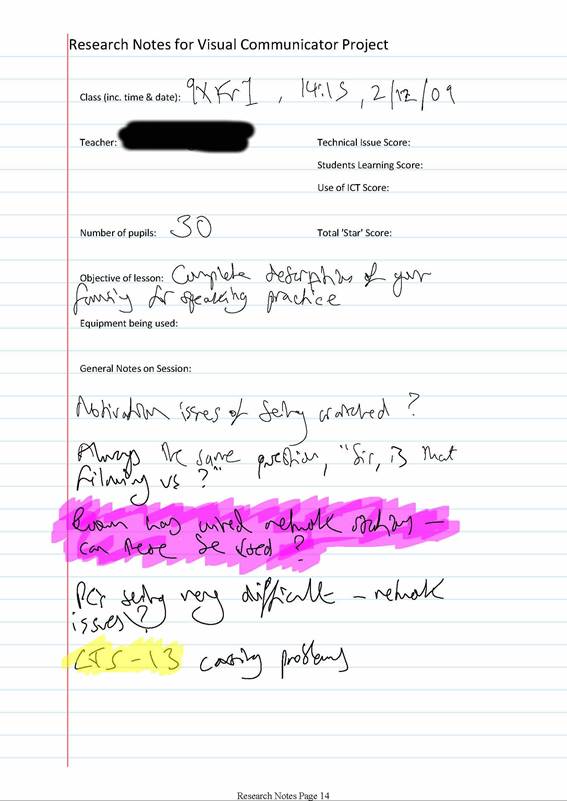 Research Notes for Visual Communicator Project
Class (inc. time & date): 9XFr1, 14:15, 2/12/09
Teacher:
Technical Issue Score:
Students Learning Score:
Use of ICT Score:
Number of pupils: 30
Total 'Star' Score:
Objective of lesson: Complete description of your
family for speaking practice
Equipment being used:
General Notes on Session:
Motivation issues of being watched?
Always the same question, "Sir, is that
filming us?"
Room has wired network —
can these be used?
PCs being very difficult – network
issues?
LTS-13 causing problems
Research Notes Page 14